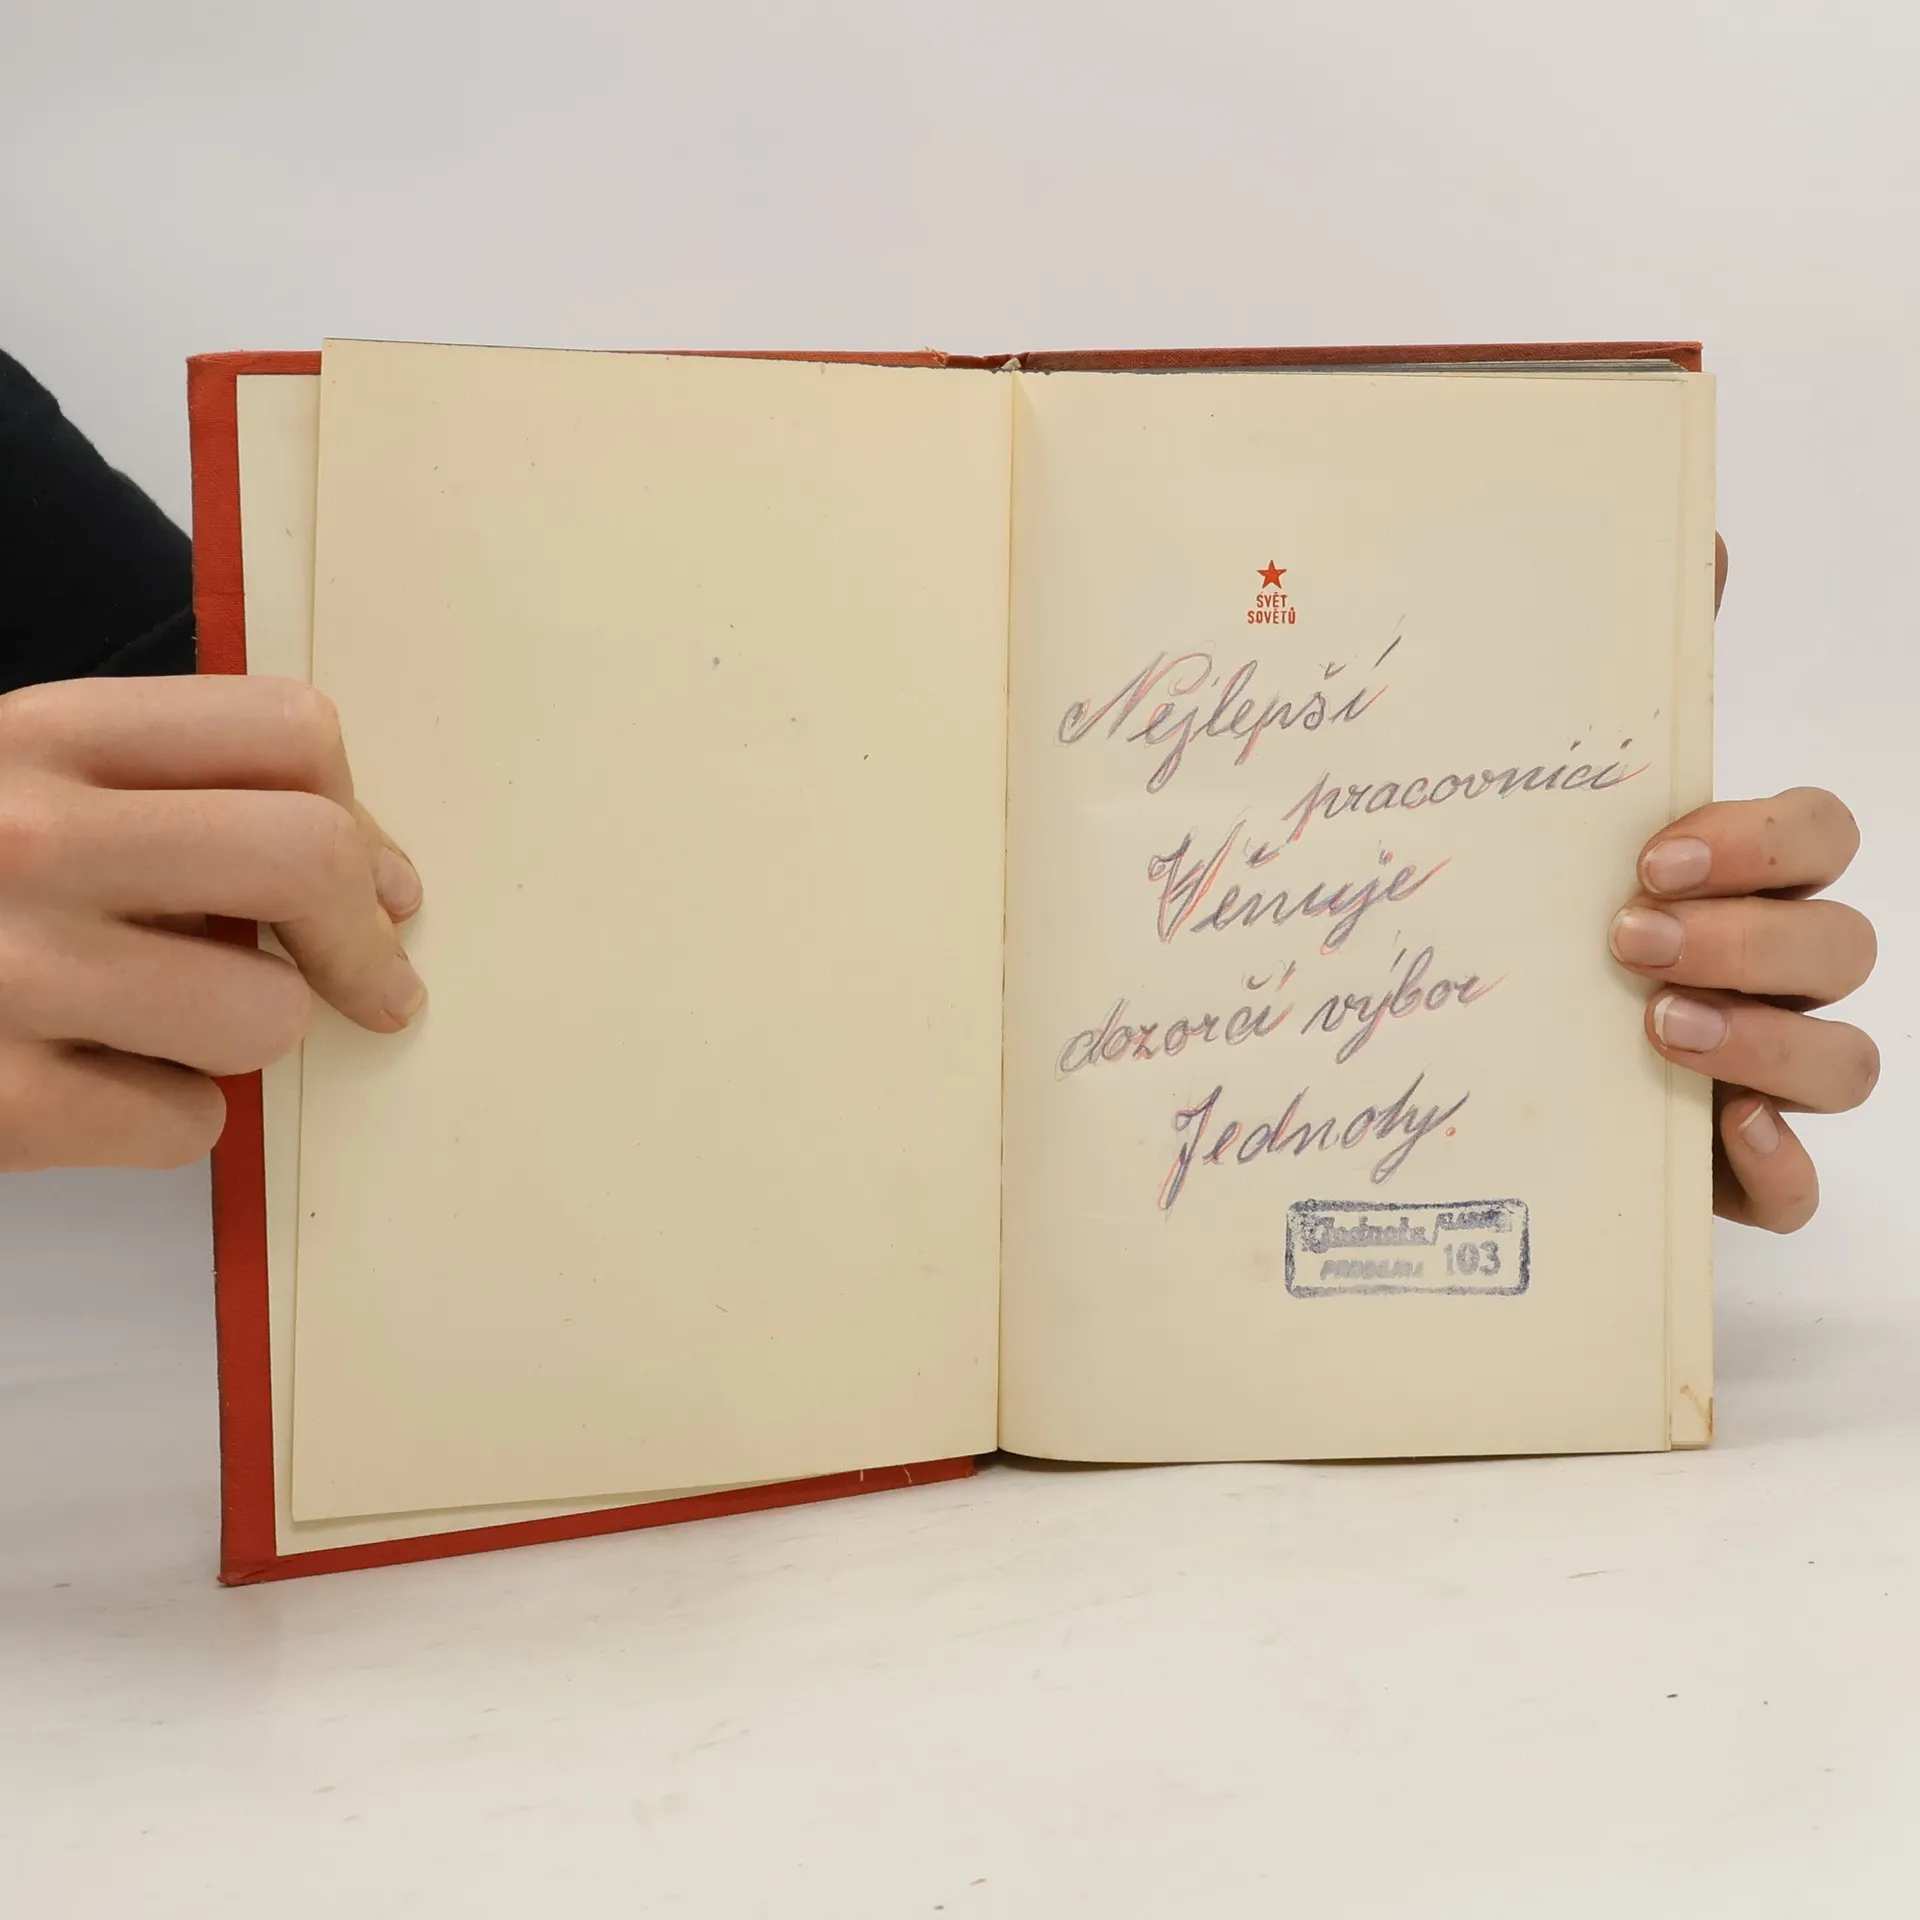 SVĚT
SOVĚTŮ
Nejlepší
pracovnici
Věnuje
dozorčí výbor
Jednoty.
Jednota
PRODEJNA 103